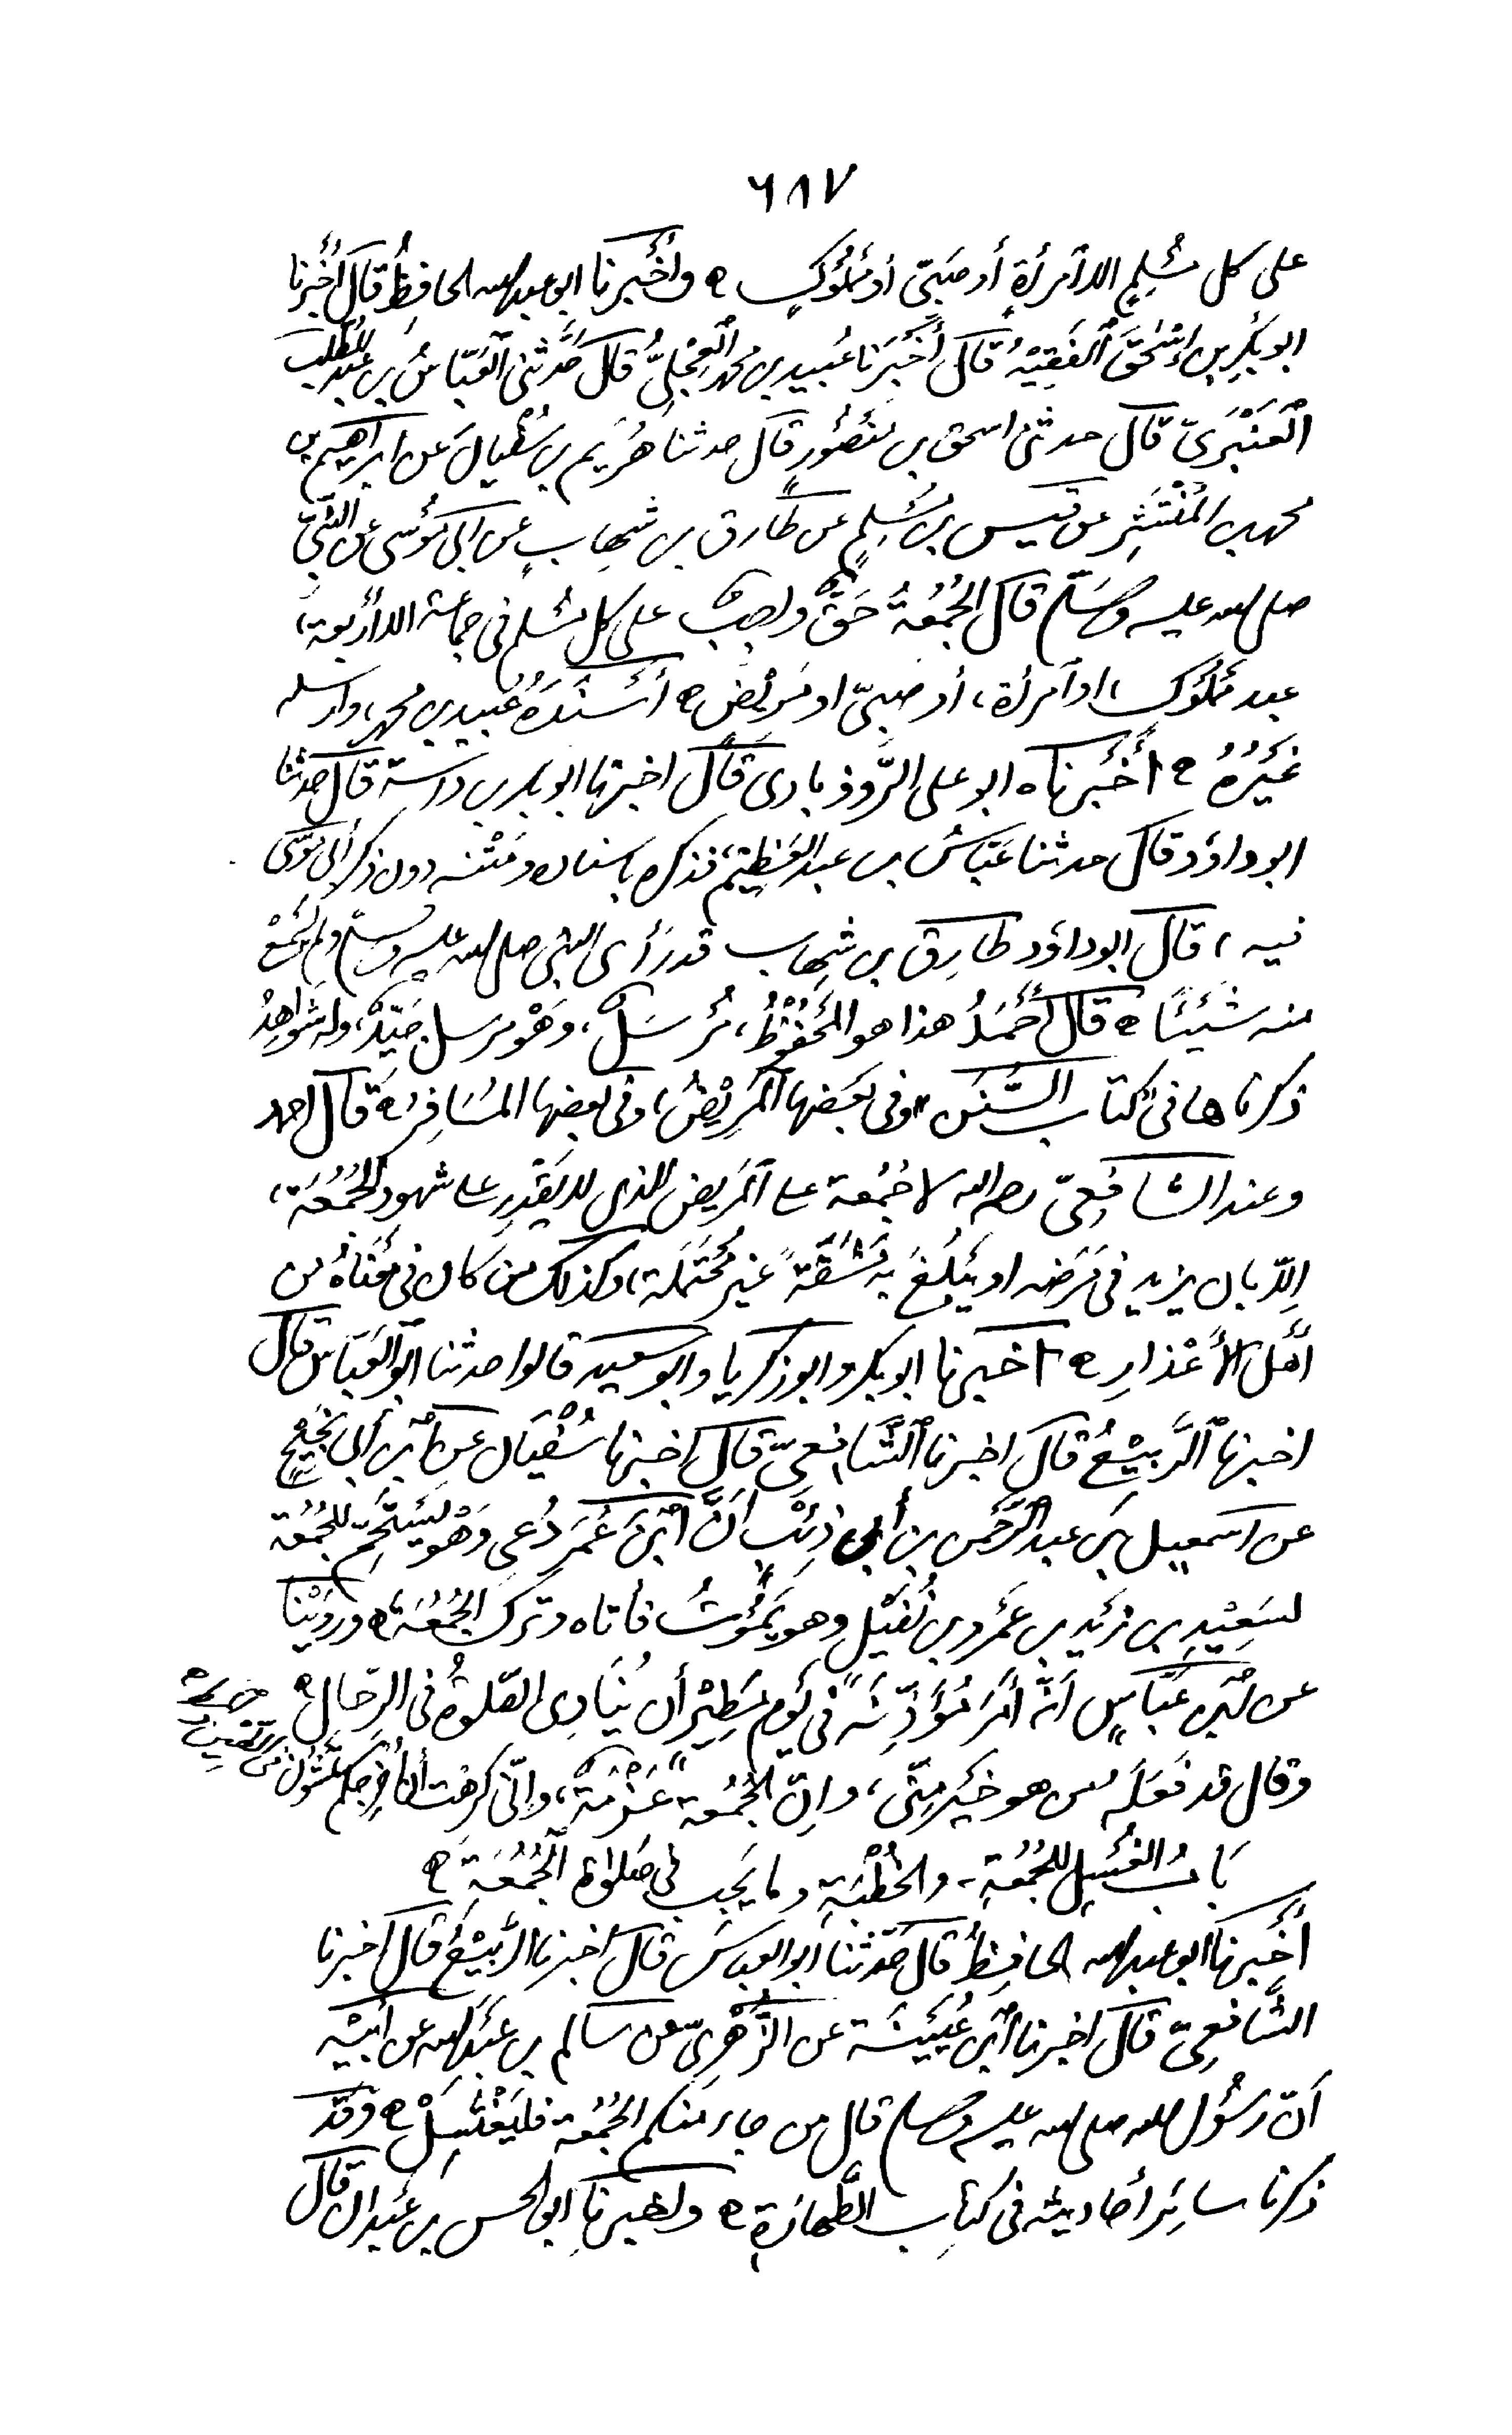 ٦٨٧
على كل مُسْلِمٍ الا آمرأةٍ أو صَبِيّ أو مَمْلُوكٍ ه وأخبرنا ابو عبد الله الحافظُ قال أخبرنا
ابو بكر بن إسْحٰقَ ٱلفَقِيْهُ قال أخْبَرَنا عُبيد بن محمد ٱلعِجْلِيُّ قال حَدَّثنى ٱلعَبّاسُ بن عبد المطلب
ٱلعَنْبَرِىّ قال حدثنى اسحق بن مَنصُورٍ قال حدثنا هُرَيم بن سُفْيان عن ابراهيم بن
محمد بن المُنْتَشِر عن قيس بن مُسْلِمٍ عن طارق بن شِهابٍ عن ابى مُوْسى عن النبىّ
صلى الله عليه وسَلّم قال الجُمُعَةُ حَقٌّ واجبٌ على كل مسلم فى جماعة الا أربعة،
عبد مَمْلُوكٍ، او آمرأة، أو صَبىّ او مَرِيْضٍ ه أسْنَدَهُ عُبَيد بن محمد، وارسله
غَيْرُهُ ه أخْبَرناه ابو على الرُّوذبادى قال اخبرنا ابو بكر بن داسة قال حدثنا
ابو داوُد قال حدثنا عَبّاسُ بن عبد العَظِيْمِ، فذكره باسناده ومَتْنه دون ذكر أبى مُوسى
فيه، قال ابو داوُد طارِق بن شِهاب قد رَأى النبى صلى الله عليه وسلّم ولم يَسْمَعْ
منه شَيْئًا ه قال أحْمَدُ هذا هو المَحْفُوْظُ، مُرْسَلٌ، وَهْوَ مرسل جَيّدٌ، وله شَوَاهِدُ
ذكرناها فى كتاب السُّنَن، وفى بَعْضها ٱلمَرِيْضُ، وفى بعضها المُسَافِرُ ه قال احمد
وعند الشافعىّ رحمه الله لا جُمُعة على ٱلمَريض الذى لا يَقْدِر على شهود الجُمُعَة،
إلّا بان يزيد فى مَرَضه او يَبْلُغَ به مَشَقَّةً غير مُحْتَمَلَة، وكذلك من كان فى مَعْناهُ من
أهْل الأعْذارِ ه أخبرنا ابو بكر وابو زكريا وابو سعيد قالوا حدثنا ابو ٱلعَبّاس قال
اخبرنا ٱلرَّبِيْعُ قال اخبرنا الشّافعىّ قال اخبرنا سُفْيان عن ابْن أبى نَجِيْحٍ
عن اسمعيل بن عبد الرَّحْمٰن بن أبى ذِئْبٍ أنَّ ابْنَ عُمَرَ دُعى وَهْوَ يَسْتَحِمّ للجُمُعة
لسَعِيْدِ بن زَيْد بن عَمْرو بن نُفَيْلٍ وهو يَمُوْتُ فأتاه وترك الجُمُعَةَ ه ورَوَيْنا
عن ابْن عَبّاسٍ أنَّه أمَرَ مُؤَذِّنَه فى يَومٍ مَطِيْرٍ أن يُنَادِى الصّلوةُ فى الرِّحَالِ ه
وقال قد فَعَلَه من هو خَيْر مِنّى، وإنّ الجُمُعة عَزْمَةٌ، وإنّى كرهت أن أُخْرِجكم تَمْشُون فى الطين
بَابُ الغُسْلِ للجُمُعَةِ، والخُطْبَةِ وما يَجِب فى صَلوٰة ٱلجُمُعَةِ ه
أخْبرنا ابو عبد الله الحافِظُ قال حَدّثنا أبو العباسَ قال أخبرنا الرَّبِيْعُ قال أخبرنا
الشَّافعىّ قال اخبرنا ابْنُ عُيَيْنَة عن الزُّهْرىّ عن سالم بن عَبْد الله عن أبيْه
أنّ رسُوْل الله صلى الله عليه وسلم قال من جاء منكم الجُمُعة فليَغْتَسِلْ ه وقد
ذكرنا سائِر أحاديثه فى كتاب الطَّهارَةِ ه وأخبرنا ابو الحسن بن عَبْدان قال